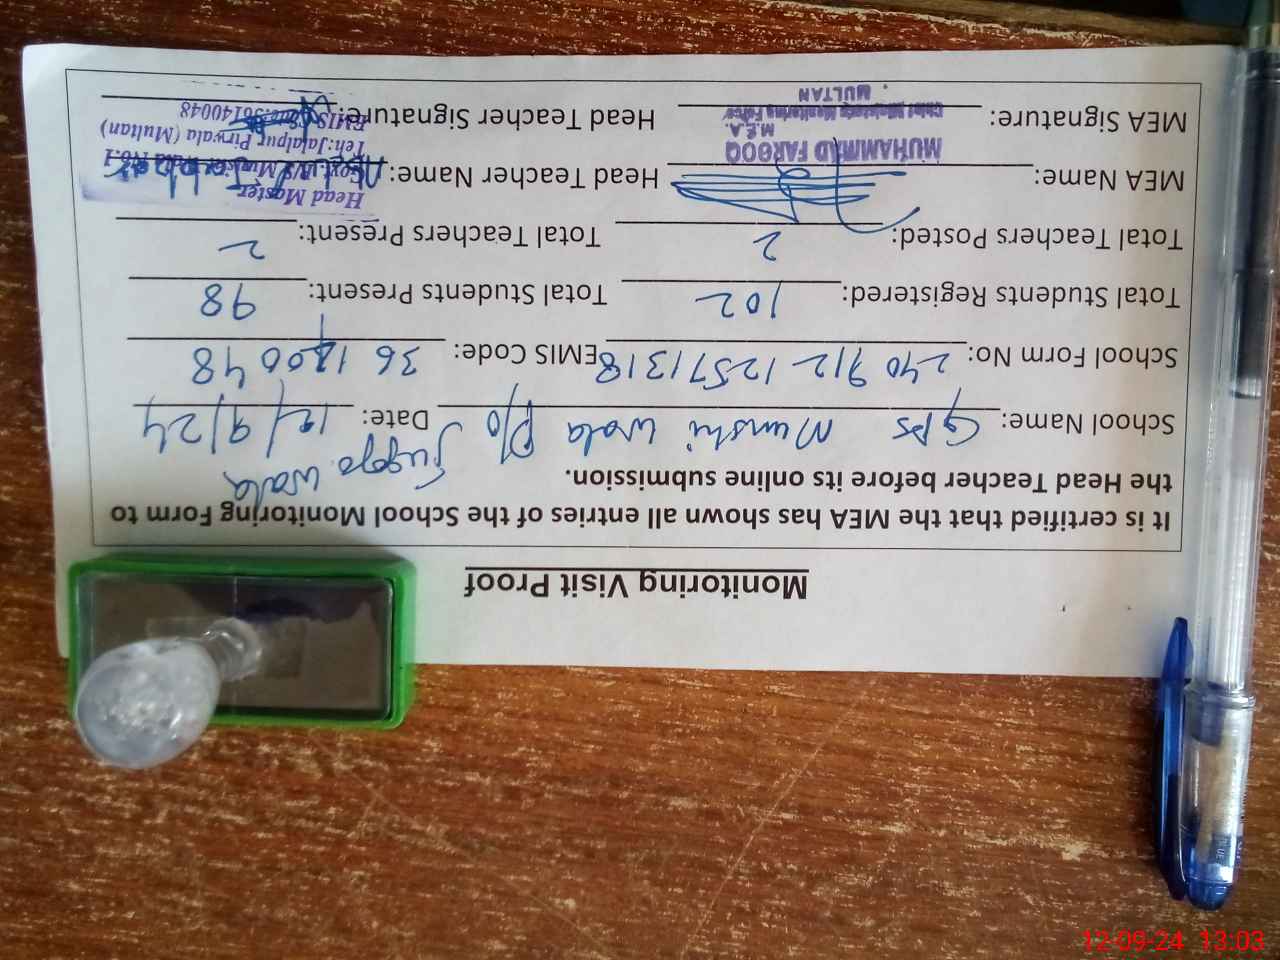 Monitoring Visit Proof
It is certified that the MEA has shown all entries of the School Monitoring Form to
the Head Teacher before its online submission.
School Name: GPS Munshi wala P/O Sugga wala Date: 12/9/24
School Form No: 240912 12571318 EMIS Code: 36140048
Total Students Registered: 102 Total Students Present: 98
Total Teachers Posted: 2 Total Teachers Present: 2
MEA Name: Head Teacher Name:
MUHAMMAD FAROOQ
M.E.A.
Chief Ministers Monitoring Force
MULTAN
Head Master
Govt. P/S Munshi Wala No.1
Teh: Jalalpur Pirwala (Multan)
EMIS Code: 36140048
MEA Signature: Head Teacher Signature:
12-09-24 13:03